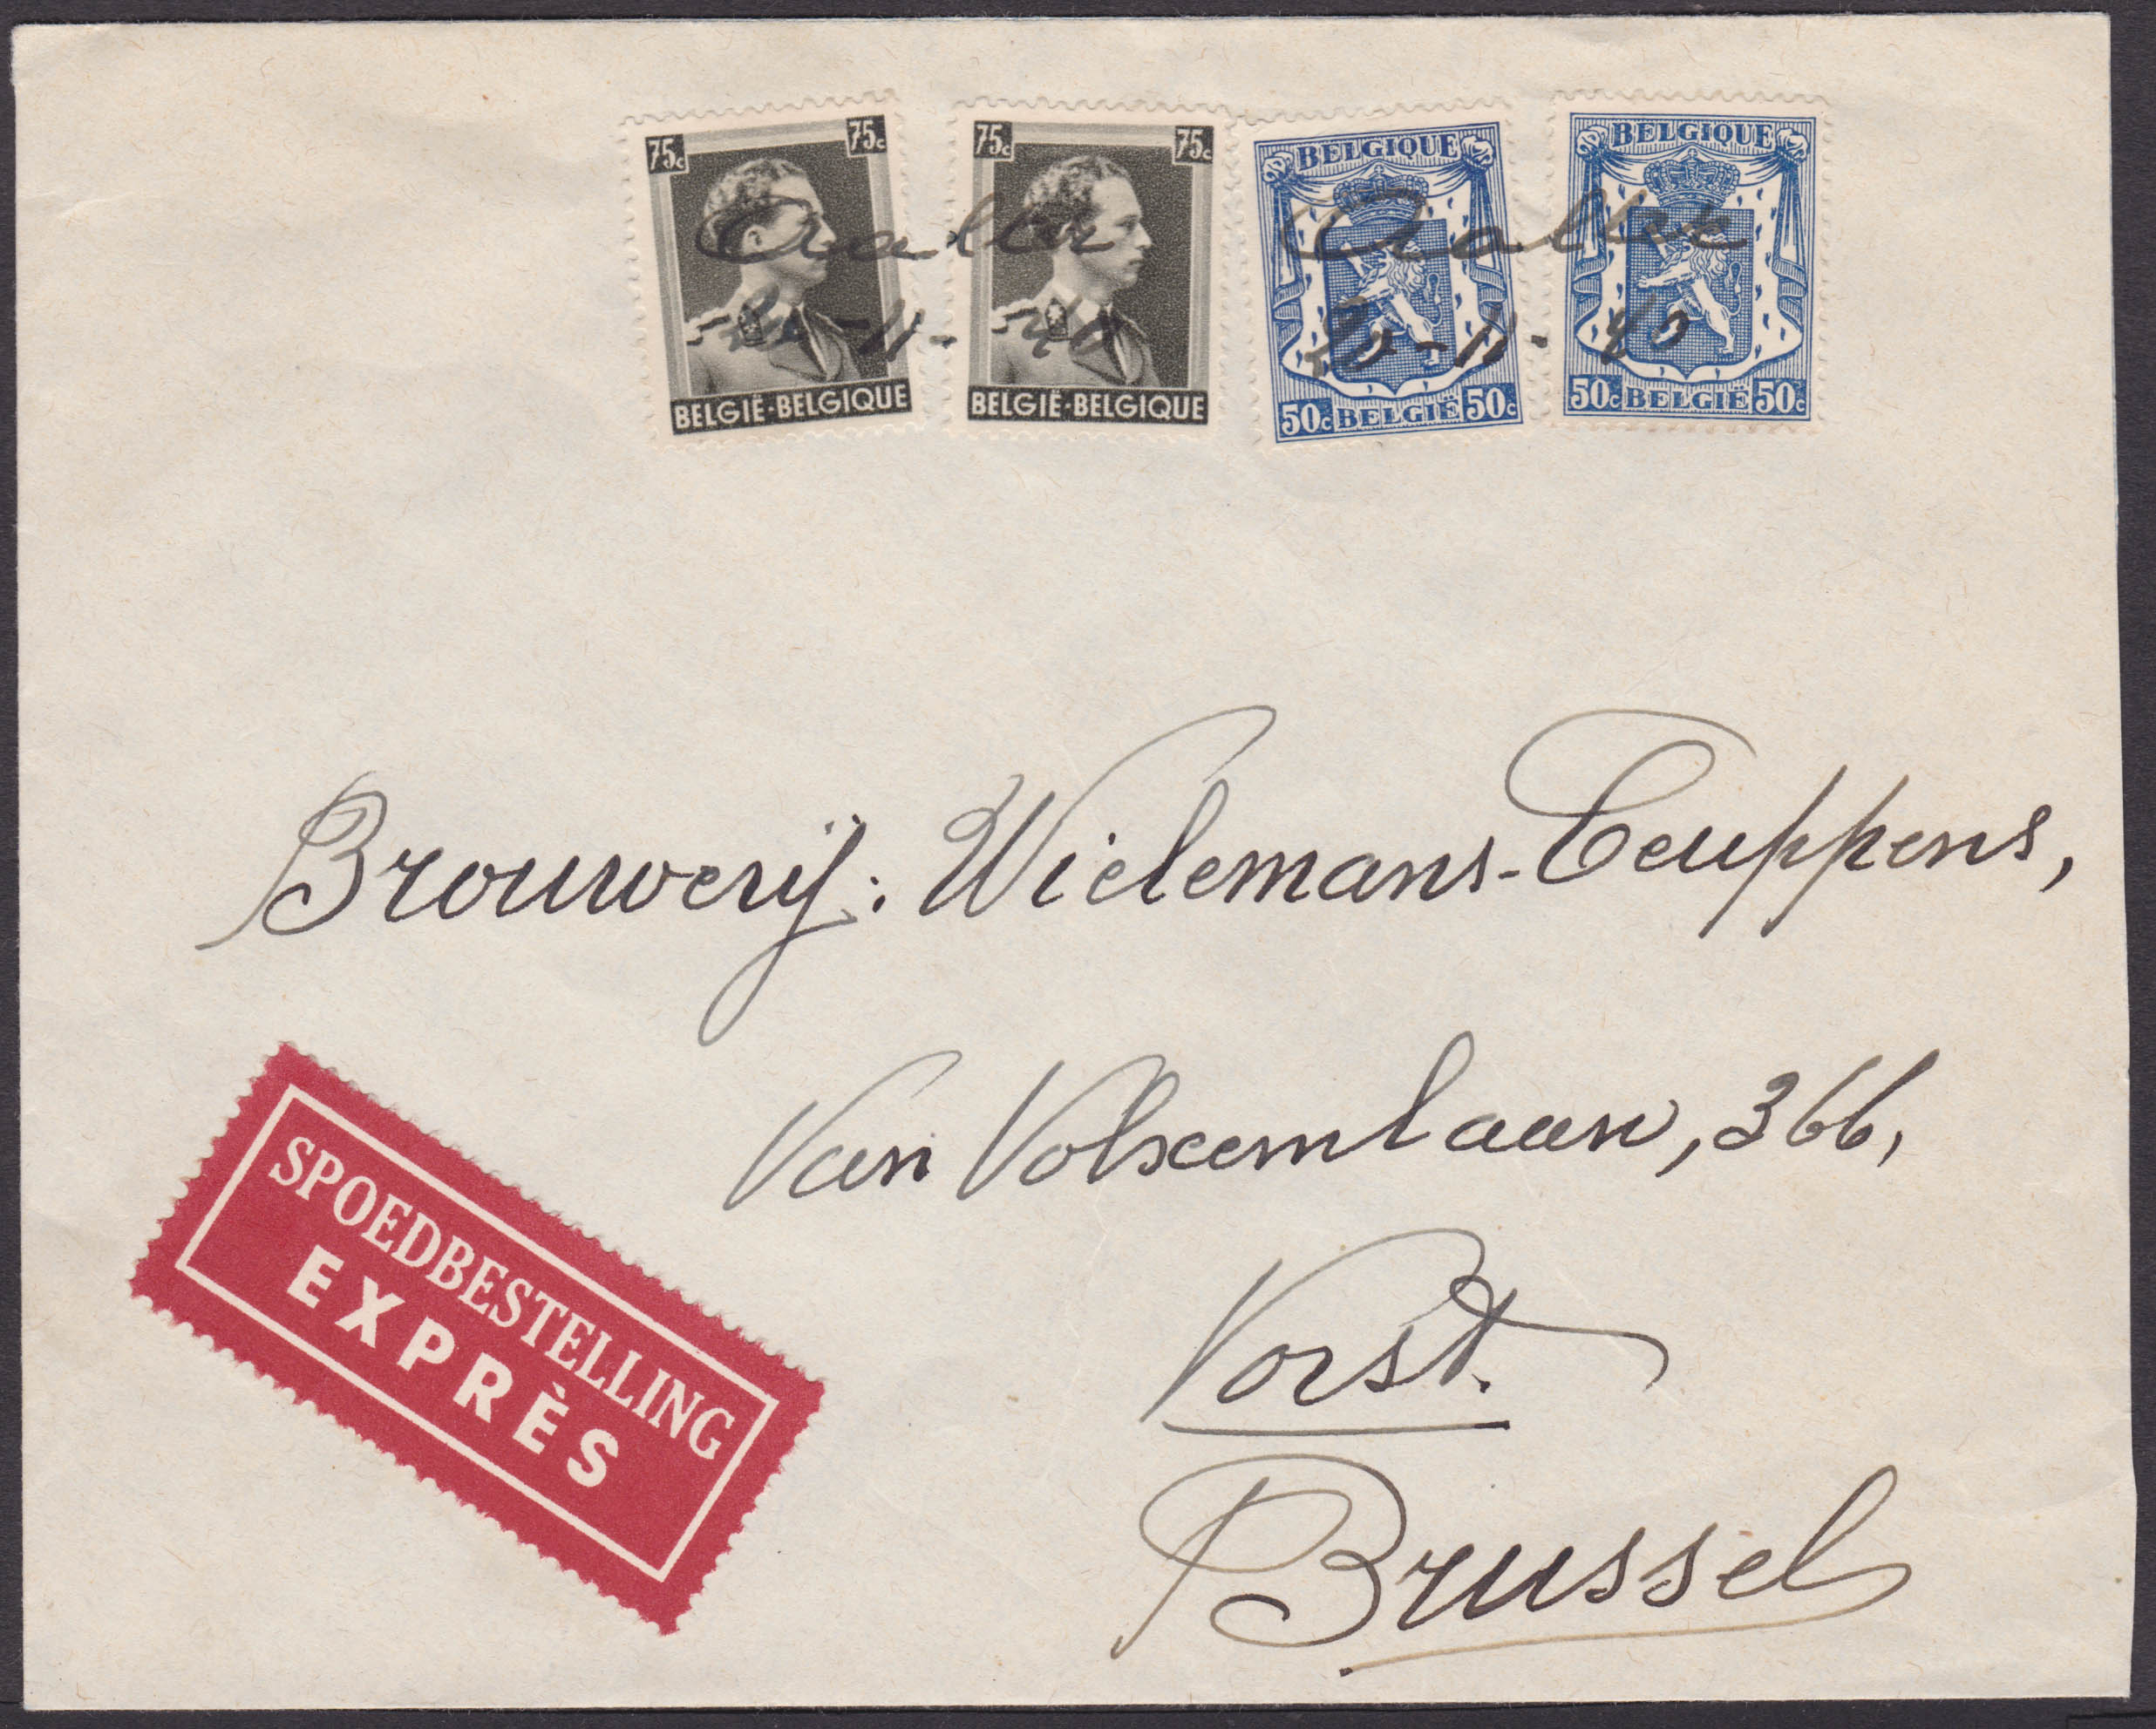 75c 75c
BELGIË-BELGIQUE
75c 75c
BELGIË-BELGIQUE
BELGIQUE
50c BELGIË 50c
BELGIQUE
50c BELGIË 50c
Aalter
20-11-40
Aalter
20-11-40
Brouwerij: Wielemans-Ceuppens,
Van Volxemlaan, 366,
Vorst.
Brussel
SPOEDBESTELLING
EXPRÈS